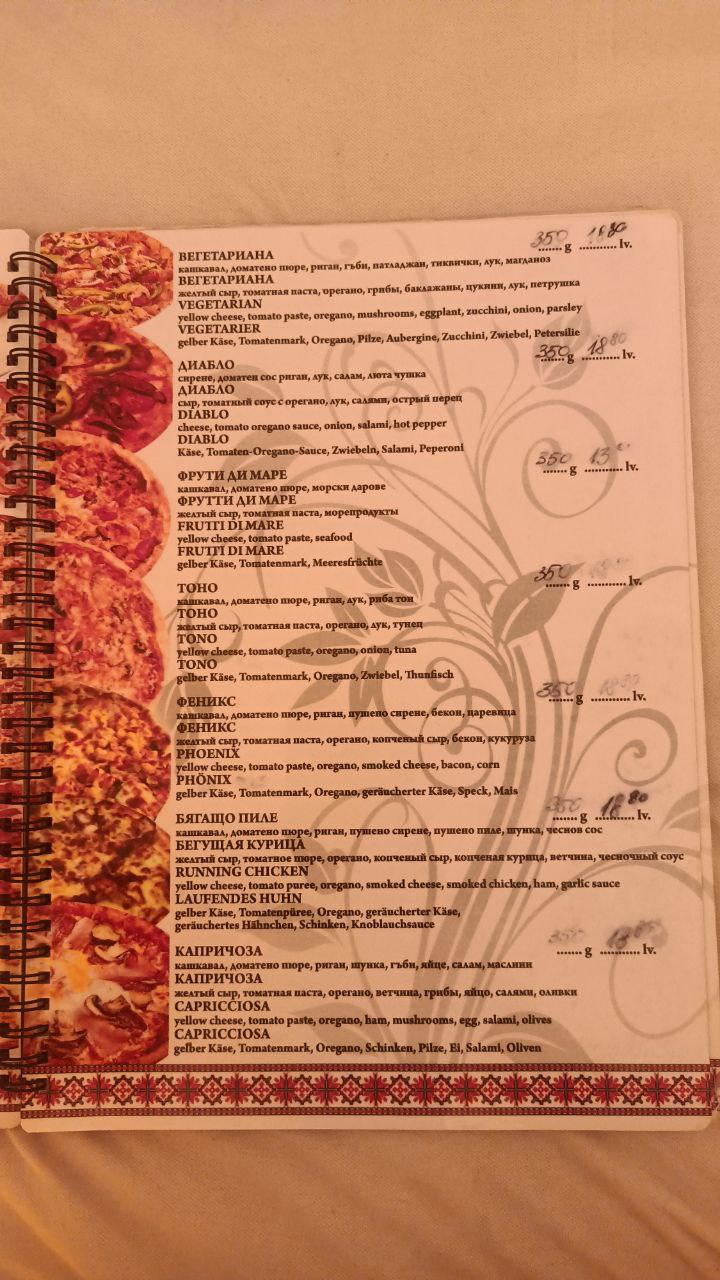 350 g 18 80 lv.
ВЕГЕТАРИАНА
кашкавал, доматено пюре, риган, гъби, патладжан, тиквички, лук, магданоз
ВЕГЕТАРИАНА
желтый сыр, томатная паста, орегано, грибы, баклажаны, цукини, лук, петрушка
VEGETARIAN
yellow cheese, tomato paste, oregano, mushrooms, eggplant, zucchini, onion, parsley
VEGETARIER
gelber Käse, Tomatenmark, Oregano, Pilze, Aubergine, Zucchini, Zwiebel, Petersilie
350 g 18 80 lv.
ДИАБЛО
сирене, доматен сос риган, лук, салам, люта чушка
ДИАБЛО
сыр, томатный соус с орегано, лук, салями, острый перец
DIABLO
cheese, tomato oregano sauce, onion, salami, hot pepper
DIABLO
Käse, Tomaten-Oregano-Sauce, Zwiebeln, Salami, Peperoni
350 g lv.
ФРУТИ ДИ МАРЕ
кашкавал, доматено пюре, морски дарове
ФРУТТИ ДИ МАРЕ
желтый сыр, томатная паста, морепродукты
FRUTTI DI MARE
yellow cheese, tomato paste, seafood
FRUTTI DI MARE
gelber Käse, Tomatenmark, Meeresfrüchte
350 g lv.
ТОНО
кашкавал, доматено пюре, риган, лук, риба тон
ТОНО
желтый сыр, томатная паста, орегано, лук, тунец
TONO
yellow cheese, tomato paste, oregano, onion, tuna
TONO
gelber Käse, Tomatenmark, Oregano, Zwiebel, Thunfisch
350 g lv.
ФЕНИКС
кашкавал, доматено пюре, риган, пушено сирене, бекон, царевица
ФЕНИКС
желтый сыр, томатная паста, орегано, копченый сыр, бекон, кукуруза
PHOENIX
yellow cheese, tomato paste, oregano, smoked cheese, bacon, corn
PHÖNIX
gelber Käse, Tomatenmark, Oregano, geräucherter Käse, Speck, Mais
350 g 18 80 lv.
БЯГАЩО ПИЛЕ
кашкавал, доматено пюре, риган, пушено сирене, пушено пиле, шунка, чеснов сос
БЕГУЩАЯ КУРИЦА
желтый сыр, томатное пюре, орегано, копченый сыр, копченая курица, ветчина, чесночный соус
RUNNING CHICKEN
yellow cheese, tomato puree, oregano, smoked cheese, smoked chicken, ham, garlic sauce
LAUFENDES HUHN
gelber Käse, Tomatenpüree, Oregano, geräucherter Käse,
geräuchertes Hähnchen, Schinken, Knoblauchsauce
350 g lv.
КАПРИЧОЗА
кашкавал, доматено пюре, риган, шунка, гъби, яйце, салам, маслини
КАПРИЧОЗА
желтый сыр, томатная паста, орегано, ветчина, грибы, яйцо, салями, оливки
CAPRICCIOSA
yellow cheese, tomato paste, oregano, ham, mushrooms, egg, salami, olives
CAPRICCIOSA
gelber Käse, Tomatenmark, Oregano, Schinken, Pilze, Ei, Salami, Oliven